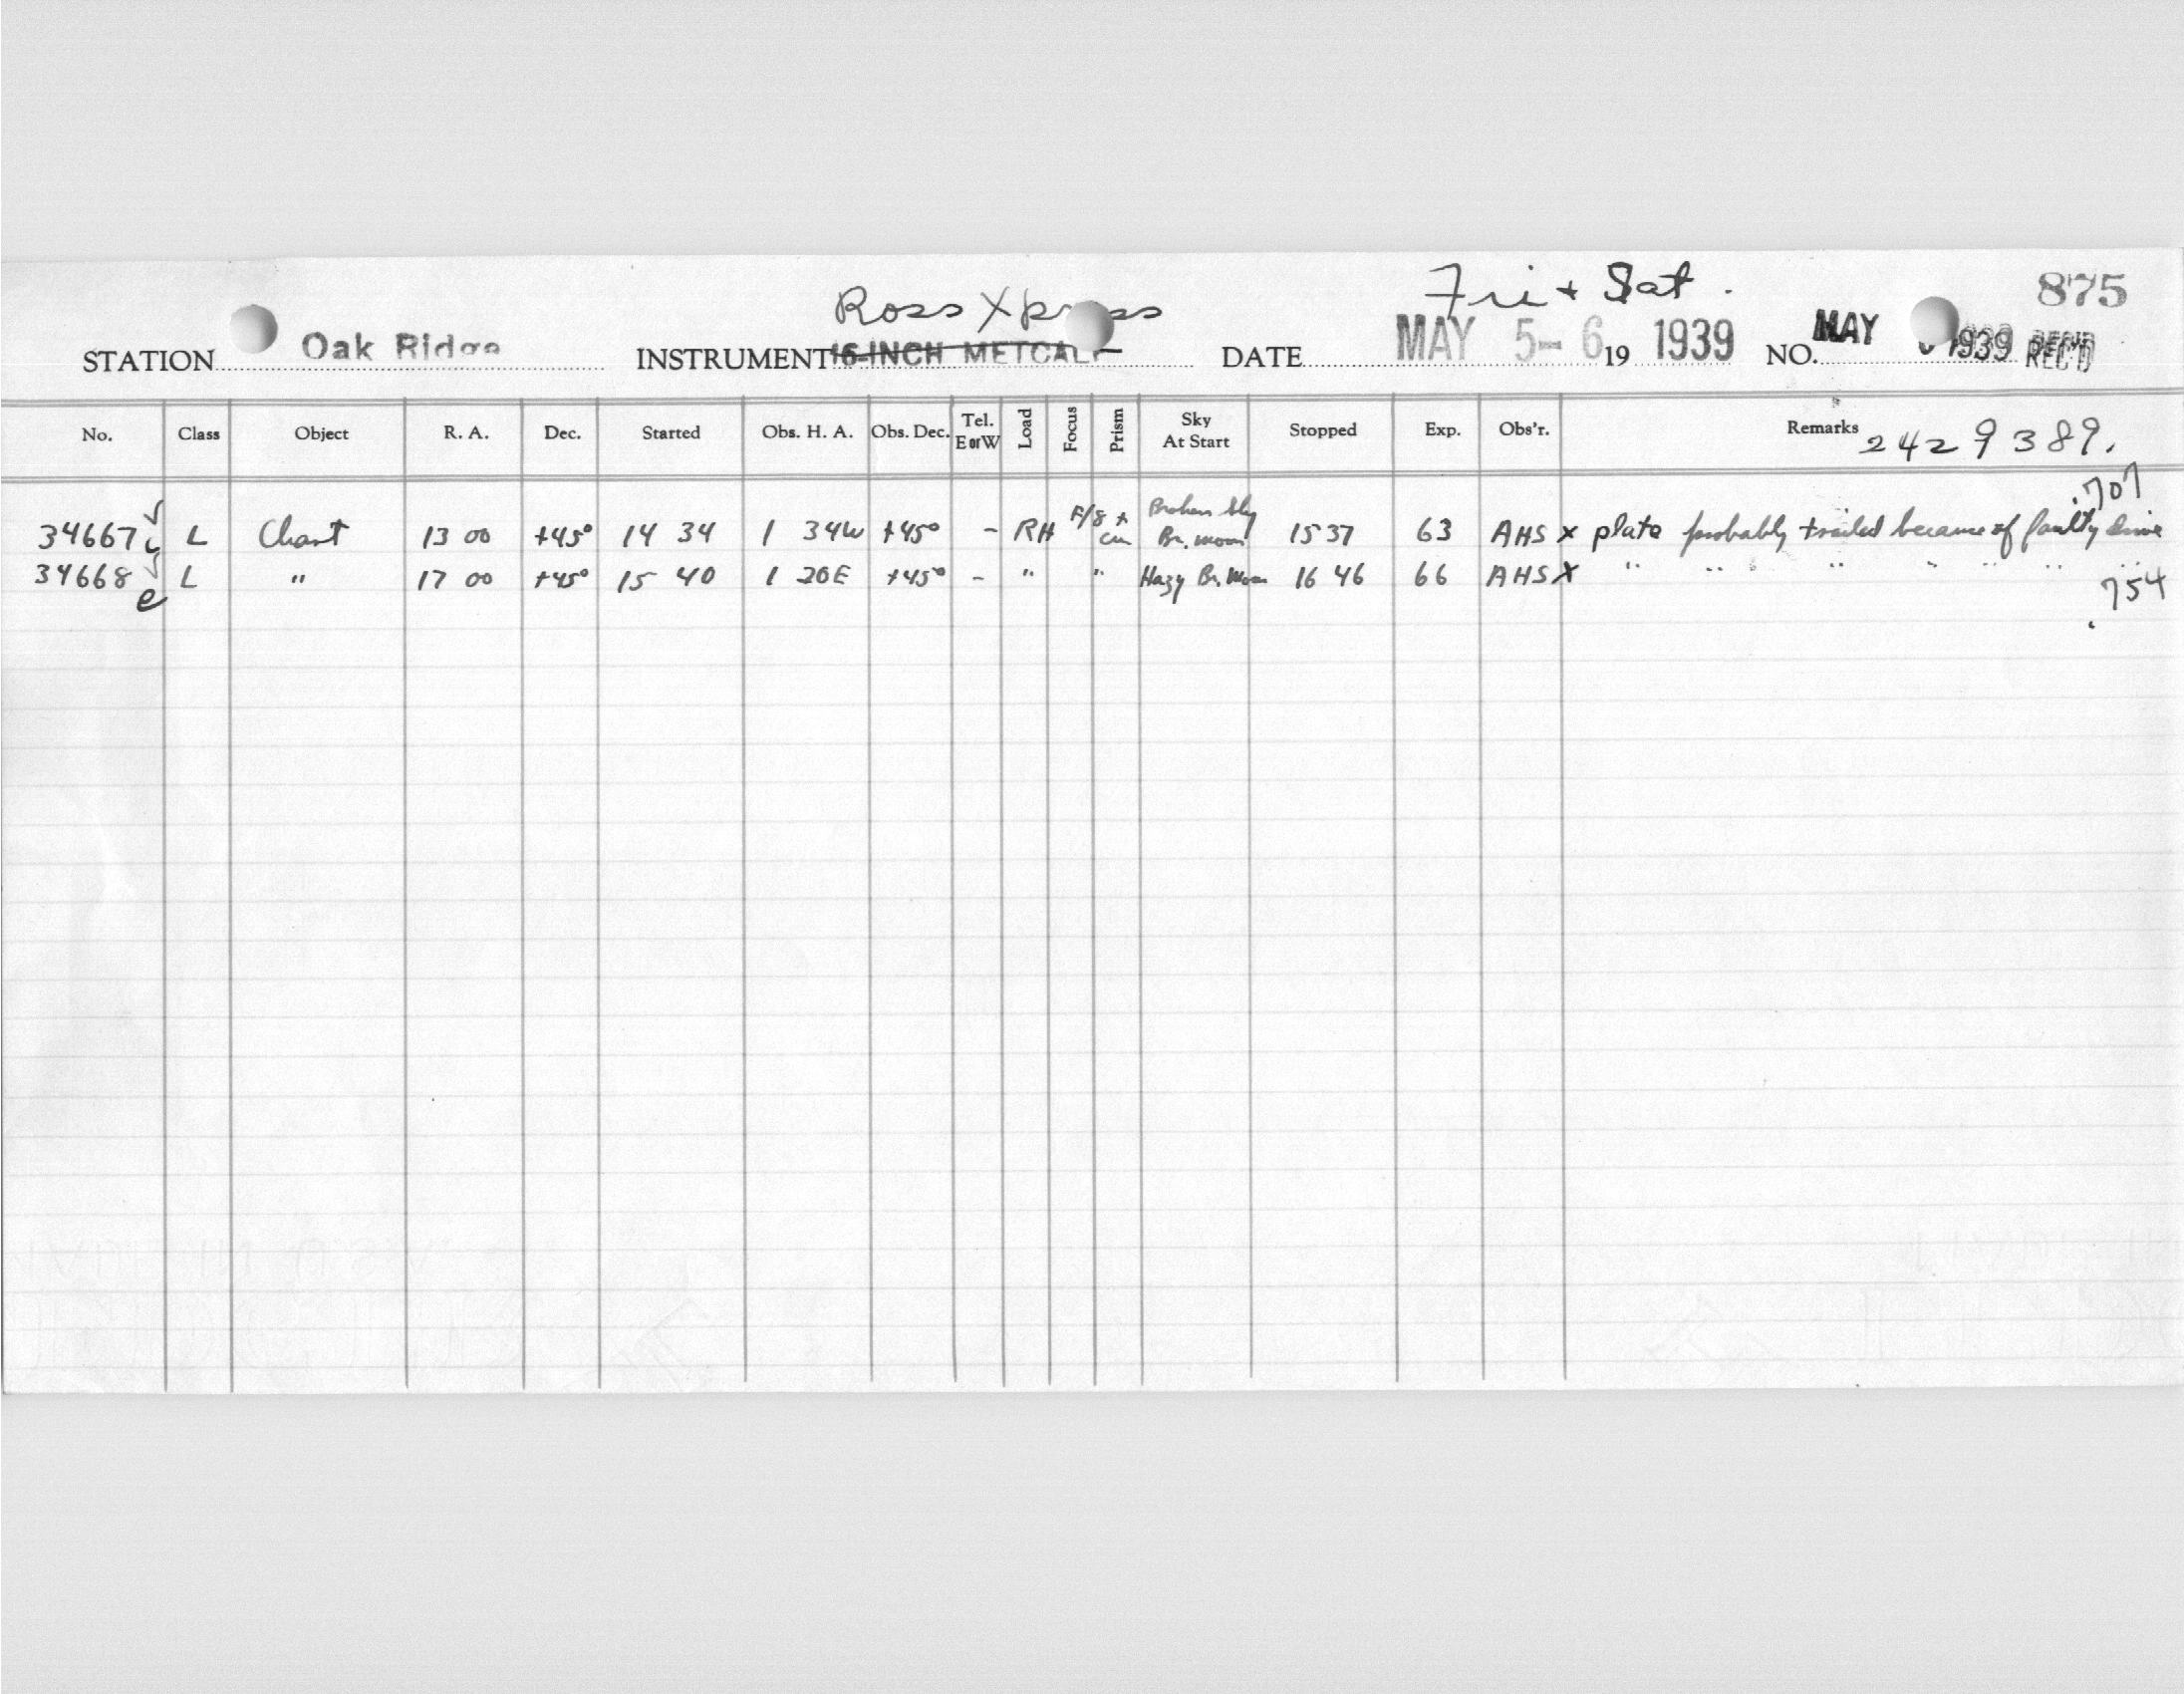 875
Ross Xpress Fri + Sat.
STATION Oak Ridge INSTRUMENT 16-INCH METCALF DATE MAY 5-6 19 1939 NO. MAY 1939 REC'D
No. Class Object R. A. Dec. Started Obs. H. A. Obs. Dec. Tel. E or W Load Focus Prism Sky At Start Stopped Exp. Obs'r. Remarks 2429389.
.707
34667 L Chart 13 00 +45° 14 34 1 34W +45° - RH F/8 + cm Broken Sky Br. moon 15 37 63 AHS X plate probably trailed because of faulty drive
34668 L " 17 00 +45° 15 40 1 20E +45° - " " Hazy Br. Moon 16 46 66 AHS X " " " " " " " "
e .754